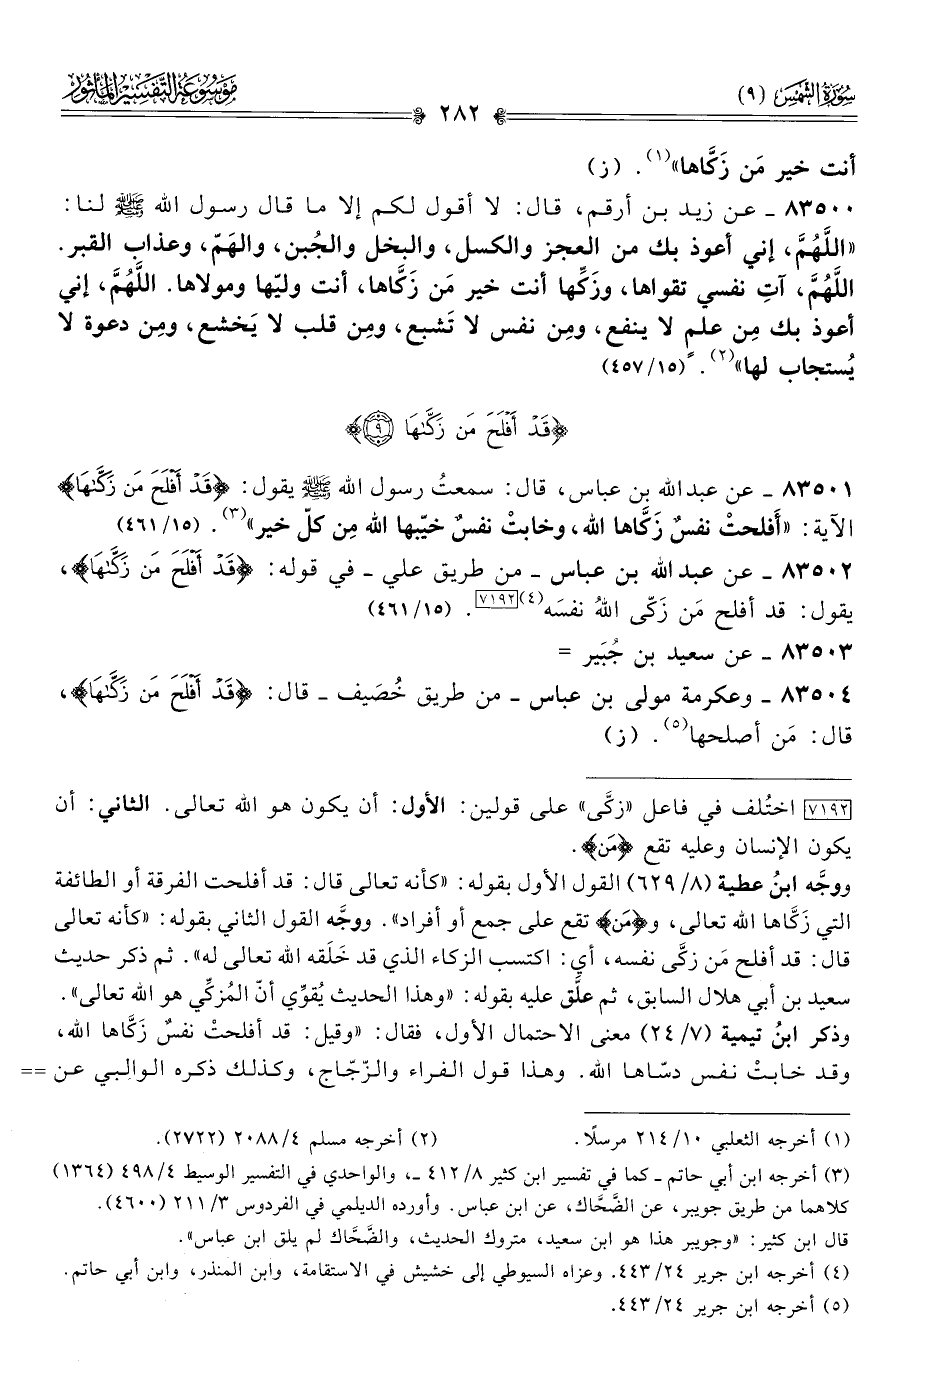 سورة الشمس (٩)
٢٨٢
موسوعة التفسير المأثور
أنت خير مَن زَكَّاها»(١). (ز)
٨٣٥٠٠ ـ عن زيد بن أرقم، قال: لا أقول لكم إلا ما قال رسول الله ﷺ لنا:
«اللَّهُمَّ، إني أعوذ بك من العجز والكسل، والبخل والجُبن، والهَمّ، وعذاب القبر.
اللَّهُمَّ، آتِ نفسي تقواها، وزَكِّها أنت خير مَن زَكَّاها، أنت وليّها ومولاها. اللَّهُمَّ، إني
أعوذ بك مِن علم لا ينفع، ومِن نفس لا تَشبع، ومِن قلب لا يَخشع، ومِن دعوة لا
يُستجاب لها»(٢). (١٥/ ٤٥٧)
﴿قَدْ أَفْلَحَ مَن زَكَّىٰهَا ٩﴾
٨٣٥٠١ ـ عن عبدالله بن عباس، قال: سمعتُ رسول الله ﷺ يقول: ﴿قَدْ أَفْلَحَ مَن زَكَّىٰهَا﴾
الآية: «أَفلحتْ نفسٌ زَكَّاها الله، وخابتْ نفسٌ خيّبها الله مِن كلّ خير»(٣). (١٥/ ٤٦١)
٨٣٥٠٢ ـ عن عبدالله بن عباس ـ من طريق علي ـ في قوله: ﴿قَدْ أَفْلَحَ مَن زَكَّىٰهَا﴾،
يقول: قد أفلح مَن زَكّى اللهُ نفسَه(٤)[٧١٩٢]. (١٥/ ٤٦١)
٨٣٥٠٣ ـ عن سعيد بن جُبَير =
٨٣٥٠٤ ـ وعكرمة مولى بن عباس ـ من طريق خُصَيف ـ قال: ﴿قَدْ أَفْلَحَ مَن زَكَّىٰهَا﴾،
قال: مَن أصلحها(٥). (ز)
[٧١٩٢] اختُلف في فاعل «زكَّى» على قولين: الأول: أن يكون هو الله تعالى. الثاني: أن
يكون الإنسان وعليه تقع ﴿مَن﴾.
ووجَّه ابنُ عطية (٨/ ٦٢٩) القول الأول بقوله: «كأنه تعالى قال: قد أفلحت الفرقة أو الطائفة
التي زَكَّاها الله تعالى، و﴿مَن﴾ تقع على جمع أو أفراد». ووجَّه القول الثاني بقوله: «كأنه تعالى
قال: قد أفلح مَن زكَّى نفسه، أي: اكتسب الزكاء الذي قد خَلَقه الله تعالى له». ثم ذكر حديث
سعيد بن أبي هلال السابق، ثم علَّق عليه بقوله: «وهذا الحديث يُقوِّي أنّ المُزكِّي هو الله تعالى».
وذكر ابنُ تيمية (٧/ ٢٤) معنى الاحتمال الأول، فقال: «وقيل: قد أفلحتْ نفسٌ زَكَّاها الله،
وقد خابتْ نفس دسّاها الله. وهذا قول الفراء والزّجّاج، وكذلك ذكره الوالبي عن ==
(١) أخرجه الثعلبي ١٠/ ٢١٤ مرسلًا. (٢) أخرجه مسلم ٤/ ٢٠٨٨ (٢٧٢٢).
(٣) أخرجه ابن أبي حاتم ـ كما في تفسير ابن كثير ٨/ ٤١٢ ـ، والواحدي في التفسير الوسيط ٤/ ٤٩٨ (١٣٦٤)
كلاهما من طريق جويبر، عن الضَّحَّاك، عن ابن عباس. وأورده الديلمي في الفردوس ٣/ ٢١١ (٤٦٠٠).
قال ابن كثير: «وجويبر هذا هو ابن سعيد، متروك الحديث، والضَّحَّاك لم يلق ابن عباس».
(٤) أخرجه ابن جرير ٢٤/ ٤٤٣. وعزاه السيوطي إلى خشيش في الاستقامة، وابن المنذر، وابن أبي حاتم.
(٥) أخرجه ابن جرير ٢٤/ ٤٤٣.